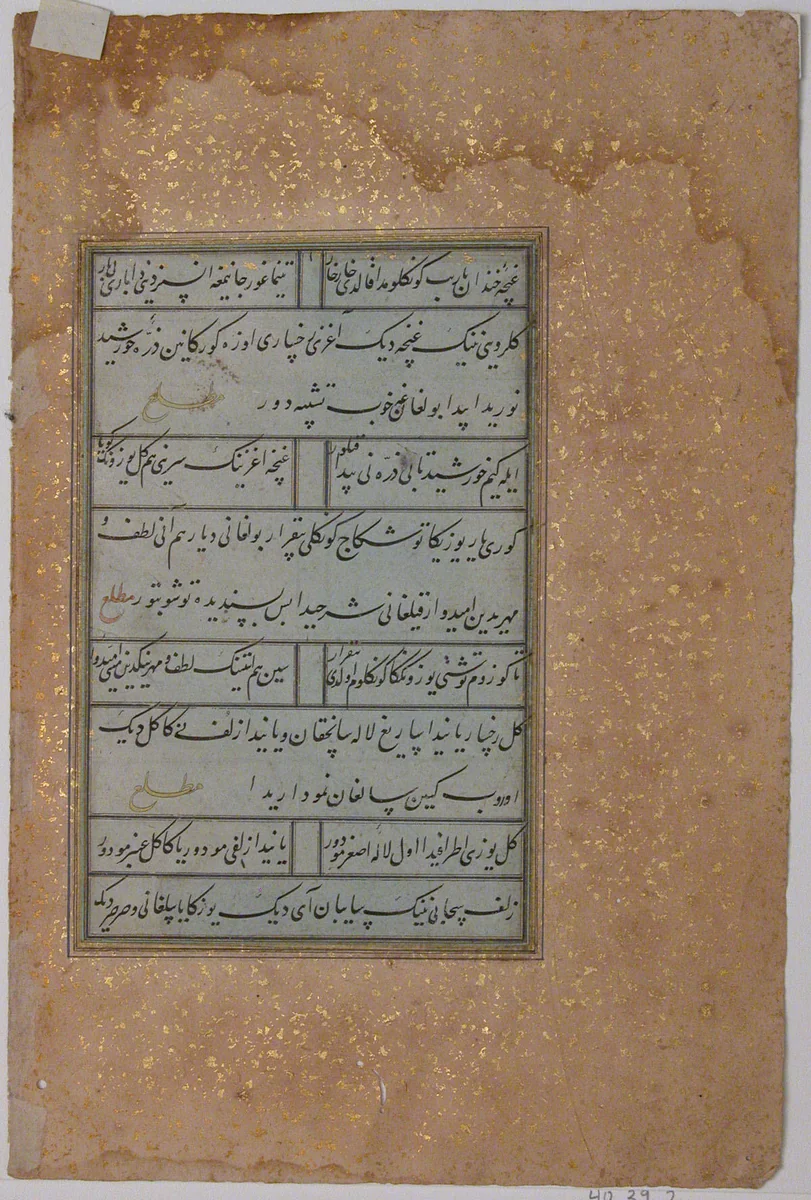 غنچهٔ خندان یارب کونکلومدا قالدی خار خار
تینماغور جانیمغه انسیز دینی
کلروی نینک غنچه دیک آغزی رخساری اوزه کورکانین ذرّه خورشید
نوریدا پیدا بولغان غه خوب تشبیه دور مطلع
ایله کیم خورشید تابی ذرّه نی پیدا قیلور
غنچه اغزینک سیرینی هم کل یوزونک
کوزی یار یوزیکا توشکاج کونکلی بیقرار بولغانی دیار هم آنی لطف و
مهریدین امیدوار قیلغانی شرحیدا بس پسندیده توشوبتور مطلع
تا کوزوم توشتی یوزونککا کونکلوم اولدی بیقرار
سین هم انینک لطف و مهرینکدین امیدوار
کل رخسار یانیدا ساریغ لاله سانجقان و یانیدا زلف نی کاکل دیک
اوروب کین سالغان نموداریدا مطلع
کل یوزی اطرافیدا اول لالهٔ اصفرمودور
یا نیدا زلفی مودور یا کاکل عنبرمودور
زلف سحابی نینک سایبان آی دیک یوزکا یاپیلغانی و صرصر دیک
40.39.2